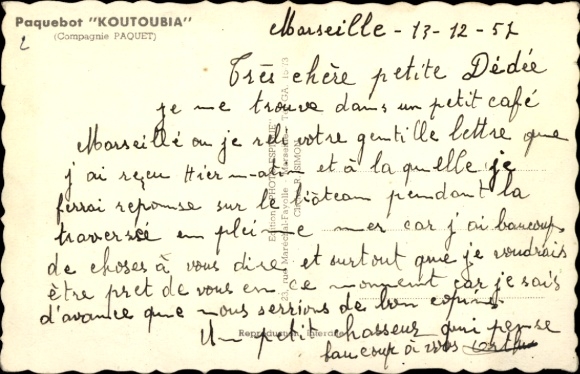 Paquebot "KOUTOUBIA"
(Compagnie PAQUET)
Marseille - 13-12-51
Très chère petite Dédée
je me trouve dans un petit café
Marseille ou je relis votre gentille lettre que
j'ai reçu Hier matin et à la quelle je
ferrai reponse sur le bâteau pendant la
traversée en pleine mer car j'ai baucoup
de choses à vous dire et surtout que je voudrais
être pret de vous en ce moment car je sais
d'avance que nous serrions de bon copins
Un petit chasseur qui pense
baucoup à vos
Edition "PHOTO
23, rue Maréchal-Favolle, Marseille
Reproduction Interdite